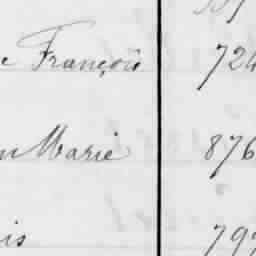 e François 724
n Marie 876
is 797